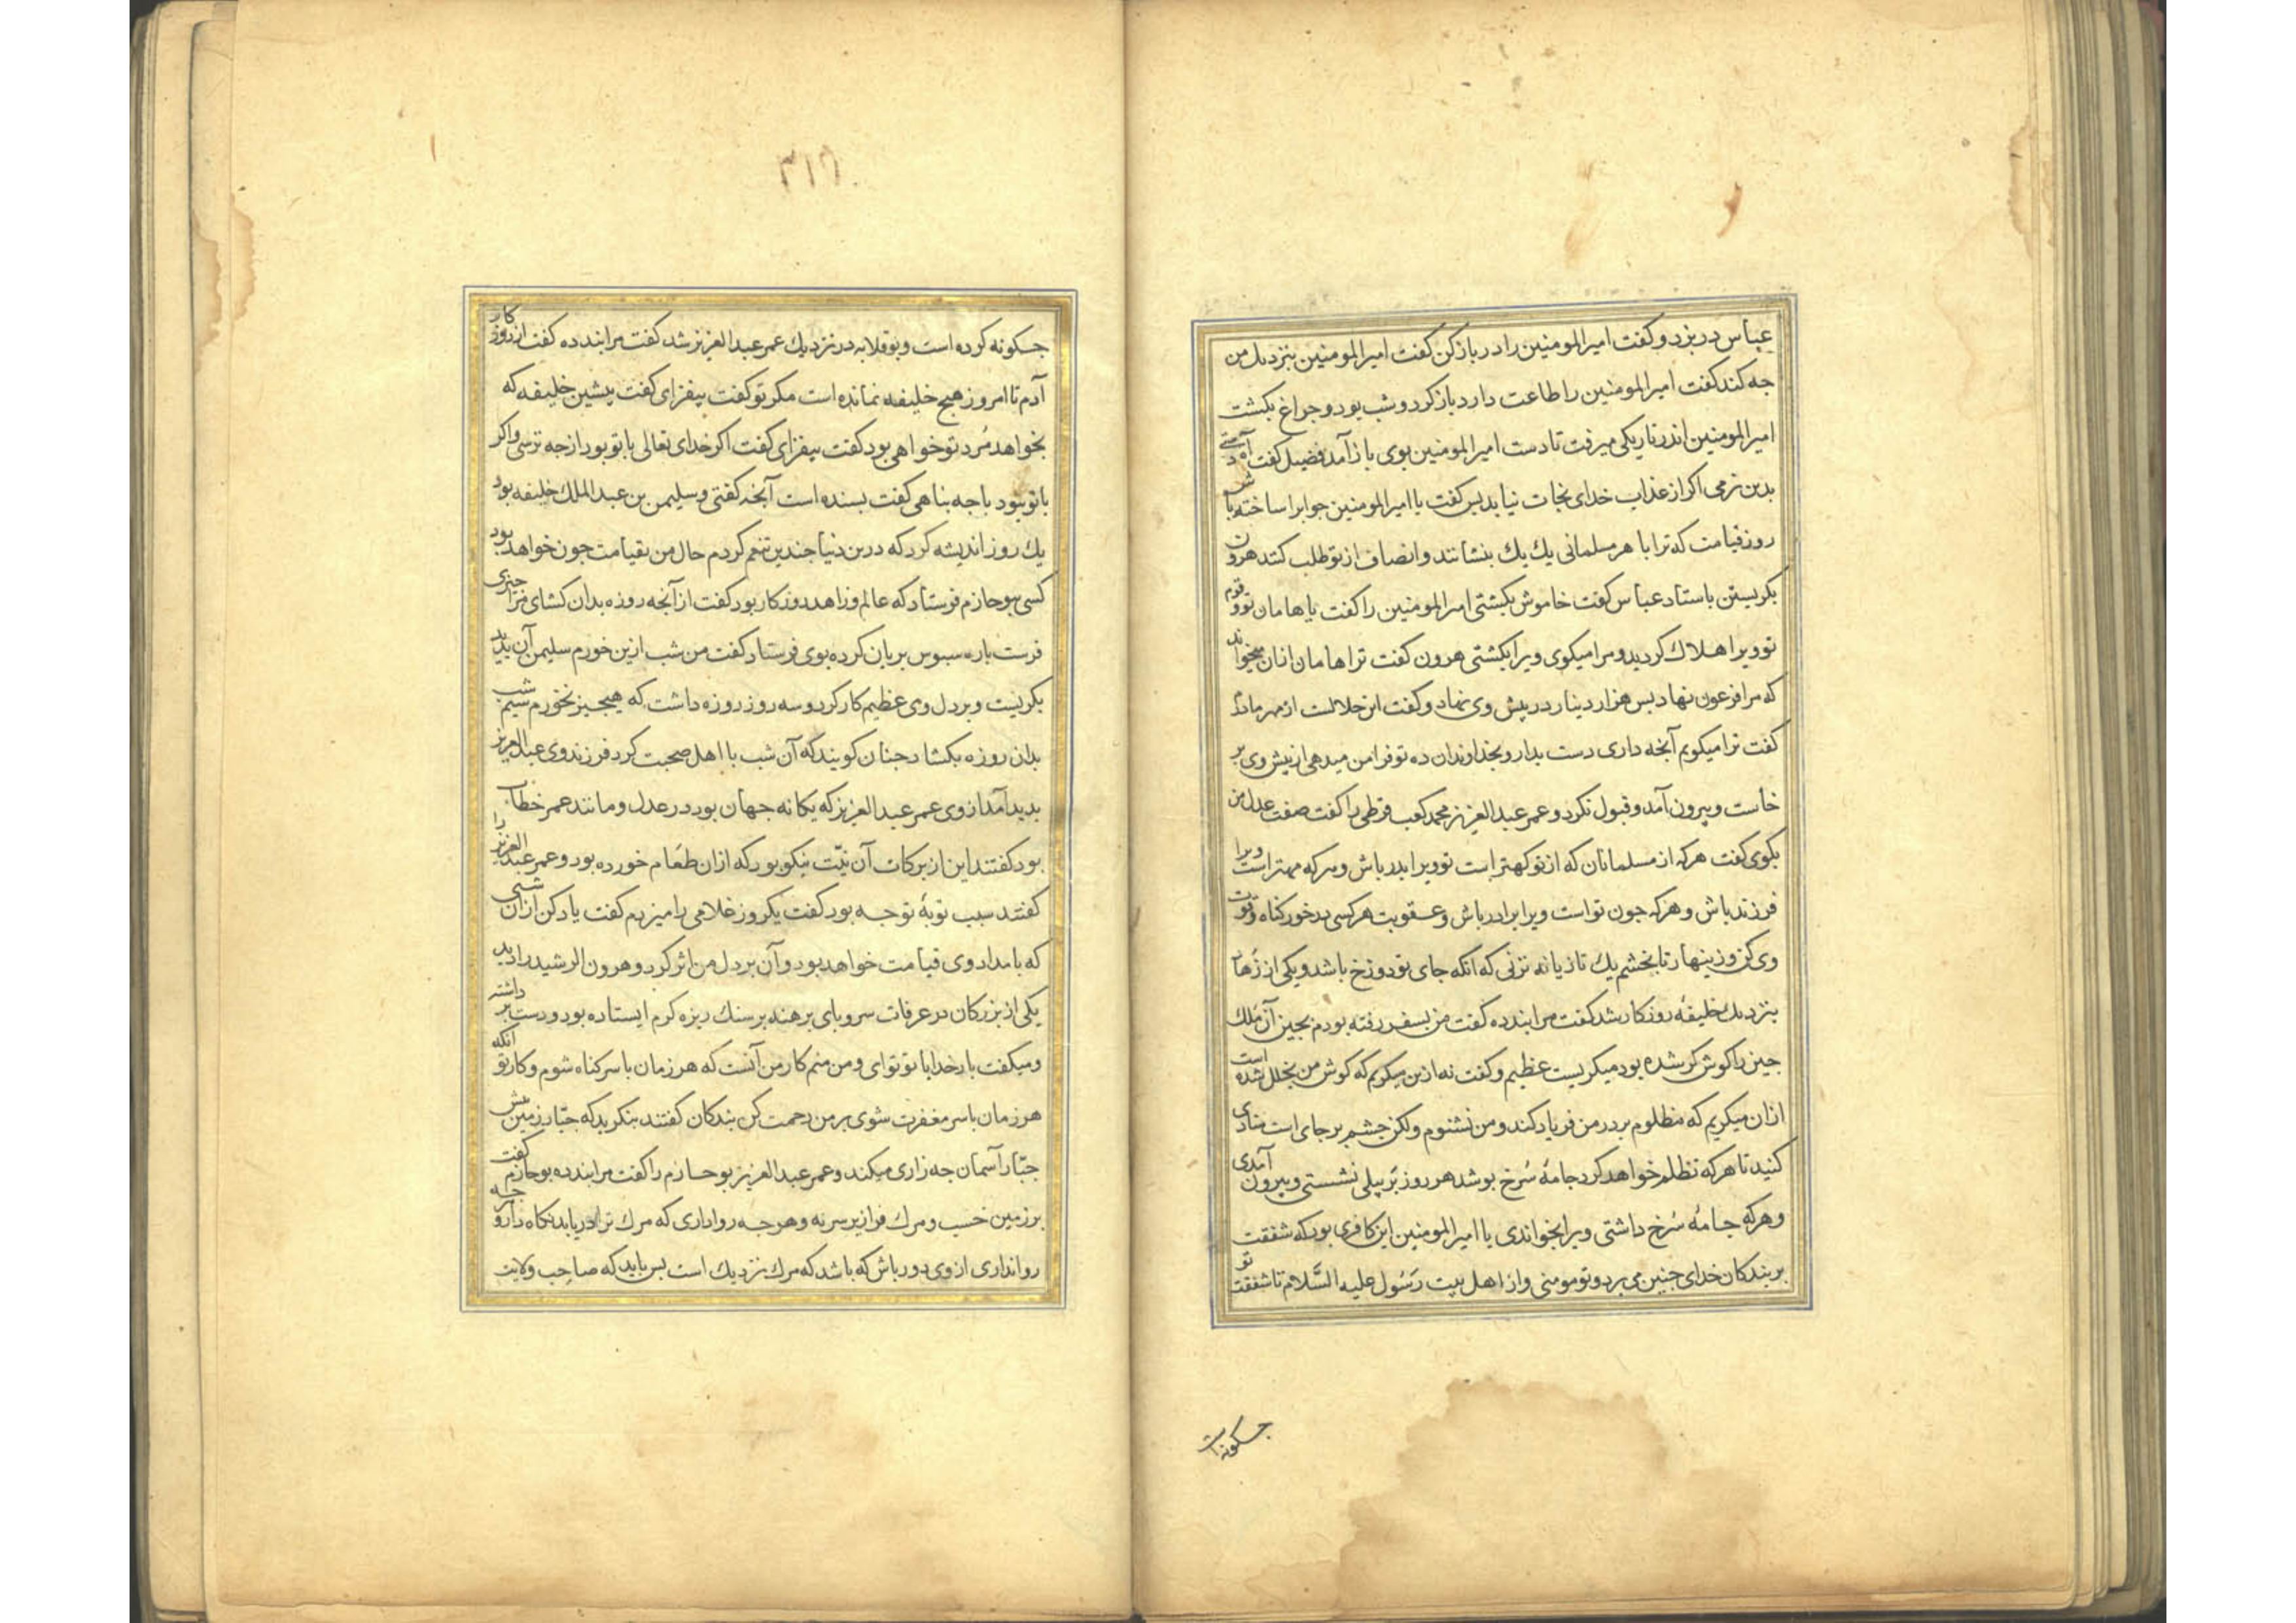 عباس در بزد و کفت امیر المومنین را در باز کن کفت امیر المومنین بنزدیك من
جه کند کفت امیر المومنین را طاعت دار در باز کرد و شب بود و جراغ بکشت
امیر المومنین اندر تاریکی میرفت تا دست امیر المومنین بوی باز آمد فضیل کفت آه دستی
بدین نرمی اکر از عذاب خدای نجات نیابد بس کفت یا امیر المومنین جواب را ساخته باش
روز قیامت که ترا با هر مسلمانی یك یك بنشانند و انصاف از تو طلب کنند هرون
بکریستن باستاد عباس کفت خاموش بکشتی امیر المومنین را کفت یا هامان تو و قوم
تو ویرا هلاك کردید و مرا میکوی ویرا بکشتی هرون کفت ترا هامان ازان میخواند
که مرا فرعون نهاد بس هزار دینار در پیش وی نهاد و کفت این حلالست از مهر مادرم
کفت ترا میکویم آنجه داری دست بدار و بخداوندان ده تو فرا من میدهی از پیش وی بر
خاست و بیرون آمد و قبول نکرد و عمر عبد العزیز محمد کعب قرظی را کفت صفت عدل من
بکوی کفت هر که از مسلمانان که از تو کهتر است تو ویرا بدر باش و هر که مهتر است ویرا
فرزند باش و هر که جون تو است ویرا برادر باش و عقوبت هر کسی در خور کناه و قوت
وی کن و زینهار تا بخشم یك تازیانه نزنی که انکه جای تو دوزخ باشد و یکی از زهاد
بنزدیك خلیفهٔ روزکار شد کفت مرا پند ده کفت من بسفر رفته بودم بجین آن ملك
جین را کوش کر شده بود میکریست عظیم و کفت نه ازین میکریم که کوش من بخلل شده است
ازان میکریم که مظلوم بر در من فریاد کند و من نشنوم ولکن جشم بر جای است منادی
کنید تا هر که تظلم خواهد کرد جامهٔ سرخ بوشد هر روز بر پیلی نشستی و بیرون آمدی
و هر که جامهٔ سرخ داشتی ویرا بخواندی یا امیر المومنین این کافری بود که شفقت
بر بندکان خدای جنین می برد و تو مومنی و از اهل بیت رسول علیه السلام تا شفقت تو
جکونه است
۳۱۸
جکونه کرده است و بو قلابه در نزدیك عمر عبد العزیز شد کفت مرا پند ده کفت از روز کار
آدم تا امروز هیج خلیفه نمانده است مکر تو کفت بیفزای کفت پیشین خلیفه که
بخواهد مرد تو خواهی بود کفت بیفزای کفت اکر خدای تعالی با تو بود از جه ترسی و اکر
با تو نبود با جه بناهی کفت بسنده است آنجه کفتی و سلیمن بن عبد الملك خلیفه بود
یك روز اندیشه کرد که درین دنیا جندین تنعم کردم حال من بقیامت جون خواهد بود
کسی ببو حازم فرستاد که عالم و زاهد روزکار بود کفت از آنجه روزه بدان کشای مرا جیزی
فرست باره سبوس بریان کرده بوی فرستاد کفت من شب ازین خورم سلیمن آن بدید
بکریست و بر دل وی عظیم کار کرد و سه روز روزه داشت که هیجیز نخورم شب سیم
بدان روزه بکشاد جنان کویند که آن شب با اهل صحبت کرد فرزند وی عبد العزیز
بدید آمد از وی عمر عبد العزیز که یکانه جهان بود در عدل و مانند عمر خطاب
بود کفتند این از برکات آن نیّت نیکو بود که ازان طعام خورده بود و عمر عبد العزیز را
کفتند سبب توبهٔ تو جه بود کفت یکروز غلامی را میزدم کفت یاد کن ازان شبی
که بامداد وی قیامت خواهد بود و آن بر دل من اثر کرد و هرون الرشید را دید
یکی از بزرکان در عرفات سر و بای برهنه بر سنك ریزه کرم ایستاده بود و دست بر داشته
و میکفت بار خدایا تو توای و من منم کار من آنست که هر زمان با سر کناه شوم و کار تو آنکه
هر زمان با سر مغفرت شوی بر من رحمت کن بندکان کفتند بنکرید که جبّار زمین پیش
جبّار آسمان جه زاری میکند و عمر عبد العزیز بو حازم را کفت مرا پند ده بو حازم کفت
بر زمین خسب و مرك فرا زیر سر نه و هر جه روا داری که مرك ترا دریابد نکاه دار و هر جه
روا نداری از وی دور باش که باشد که مرك نزدیك است بس باید که صاحب ولایت